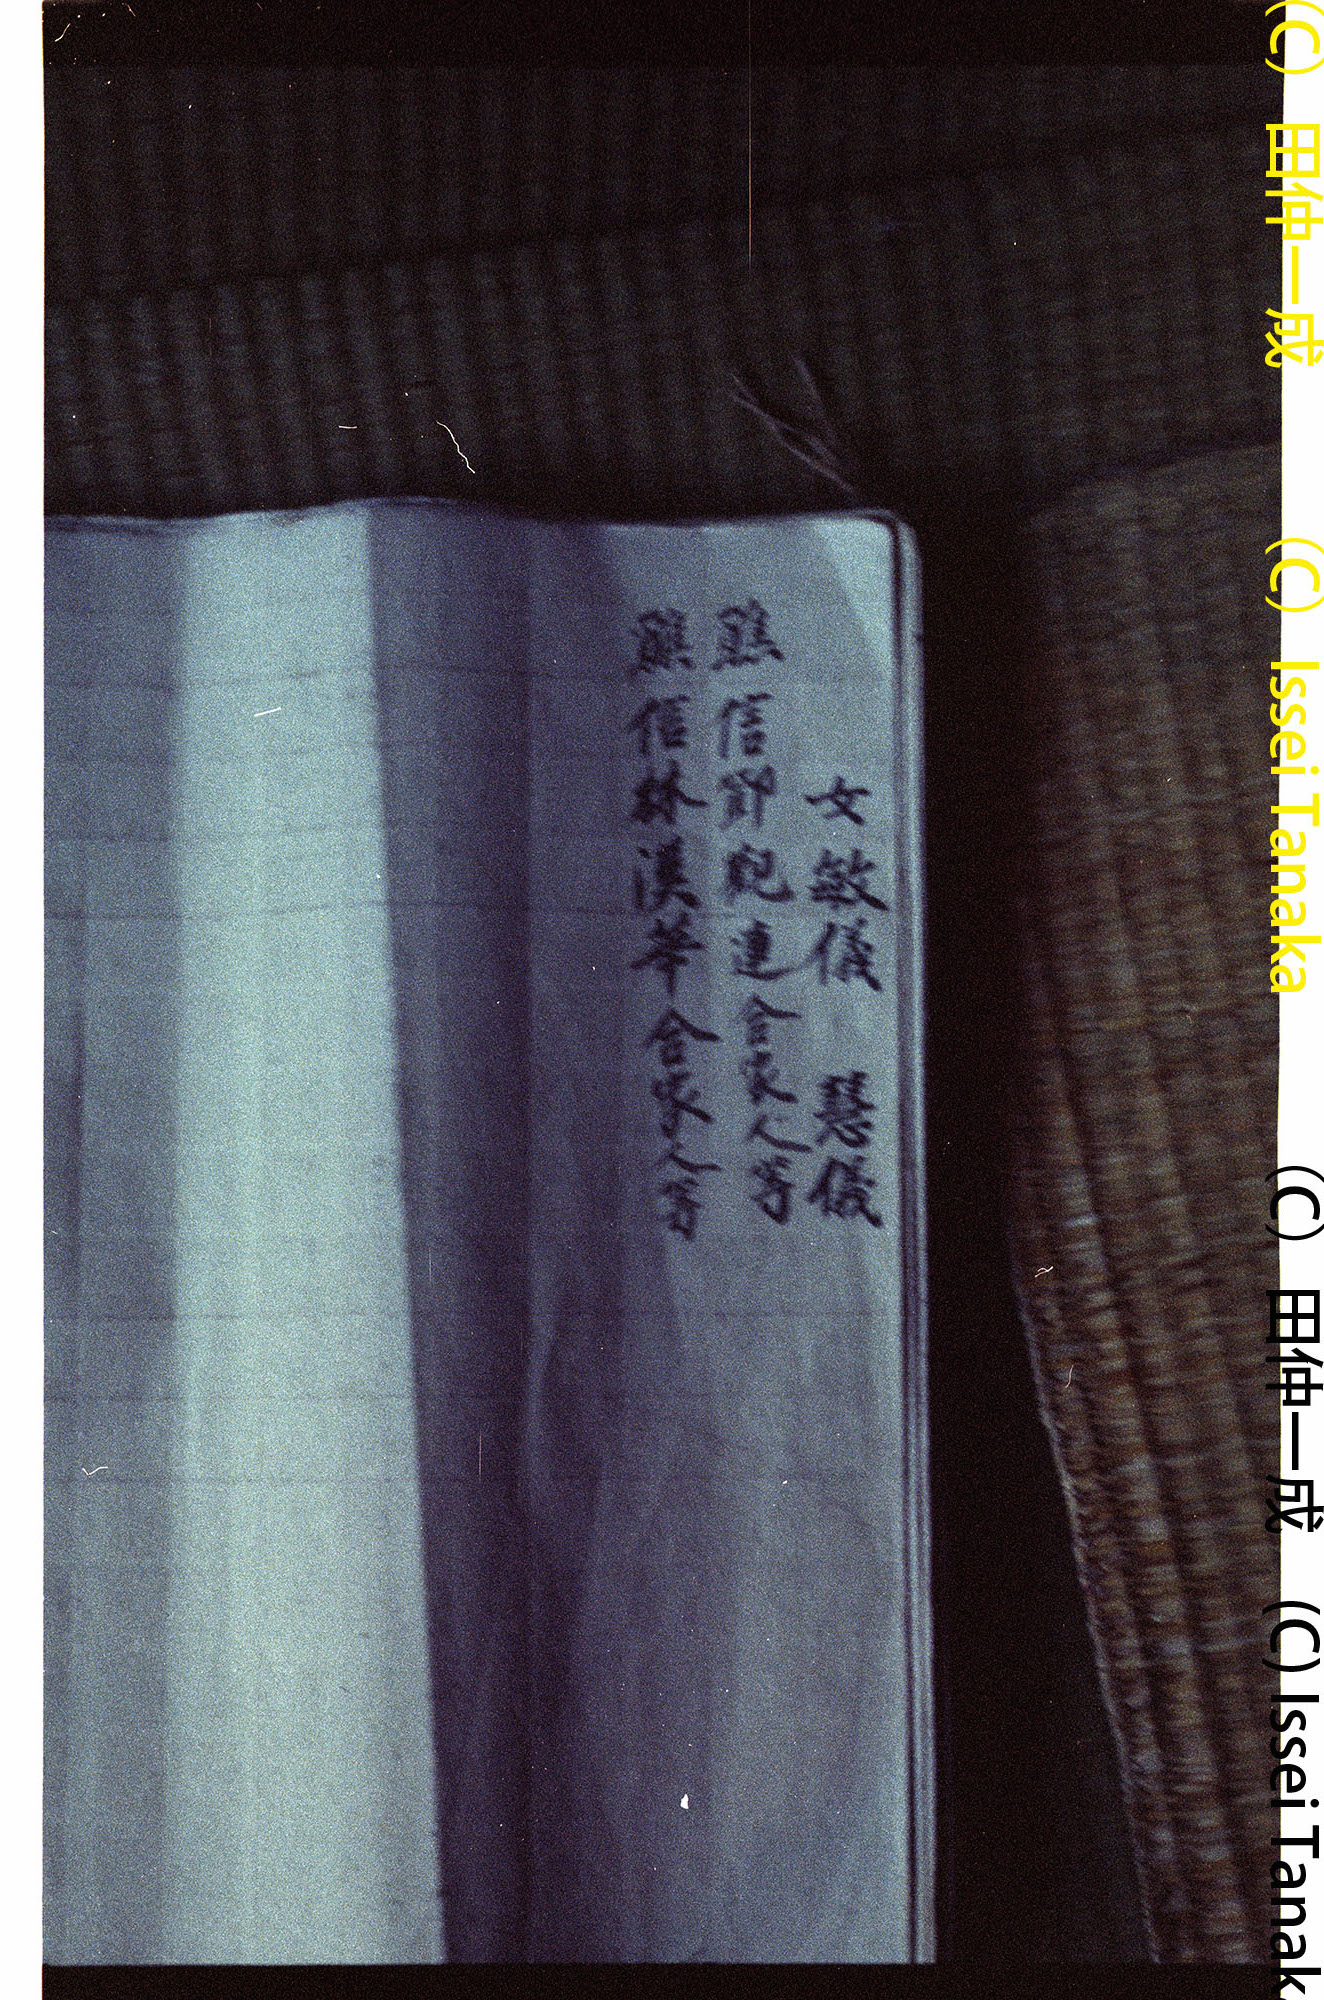 女敏儀 慧儀
醮信 連合家人等
醮信林漢華合家人等
(C) 田仲一成 (C) Issei Tanaka
(C) 田仲一成 (C) Issei Tanak